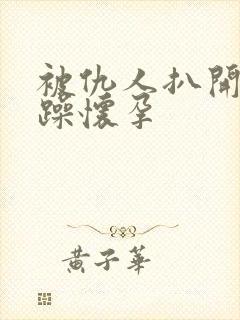 被仇人扒開
躁懷孕
黃子華